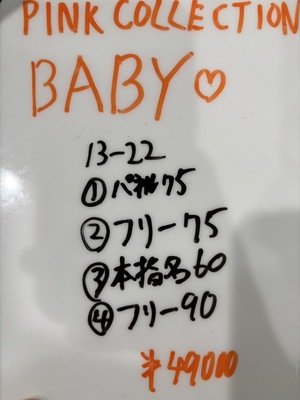 PINK COLLECTION
BABY♡
13-22
①パネル75
②フリー75
③本指名60
④フリー90
¥49000